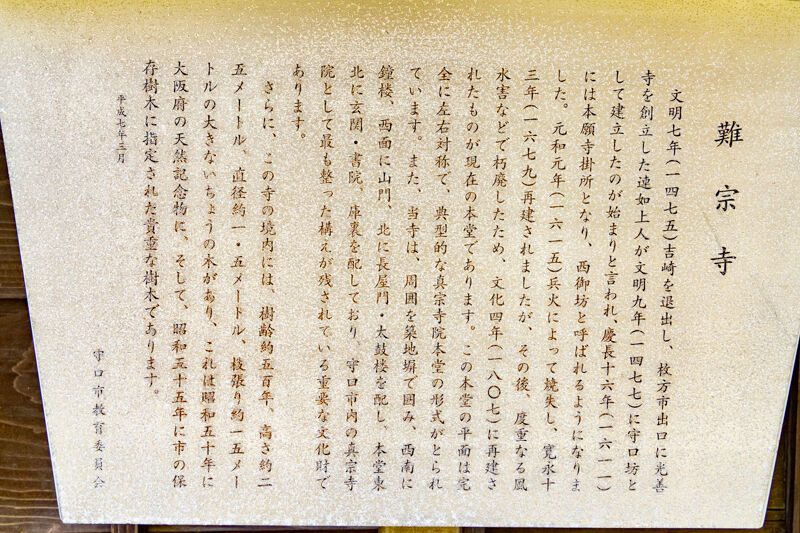 難宗寺
文明七年(一四七五)吉崎を退出し、枚方市出口に光善
寺を創立した蓮如上人が文明九年(一四七七)に守口坊と
して建立したのが始まりと言われ、慶長十六年(一六一一)
には本願寺掛所となり、西御坊と呼ばれるようになりま
した。元和元年(一六一五)兵火によって焼失し、寛永十
三年(一六七九)再建されましたが、その後、度重なる風
水害などで朽廃したため、文化四年(一八〇七)に再建さ
れたものが現在の本堂であります。この本堂の平面は完
全に左右対称で、典型的な真宗寺院本堂の形式がとられ
ています。また、当寺は、周囲を築地塀で囲み、西南に
鐘楼、西面に山門、北に長屋門・太鼓楼を配し、本堂東
北に玄関・書院、庫裏を配しており、守口市内の真宗寺
院として最も整った構えが残されている重要な文化財で
あります。
さらに、この寺の境内には、樹齢約五百年、高さ約二
五メートル、直径約一・五メートル、枝張り約一五メー
トルの大きないちょうの木があり、これは昭和五十年に
大阪府の天然記念物に、そして、昭和五十五年に市の保
存樹木に指定された貴重な樹木であります。
平成七年三月
守口市教育委員会